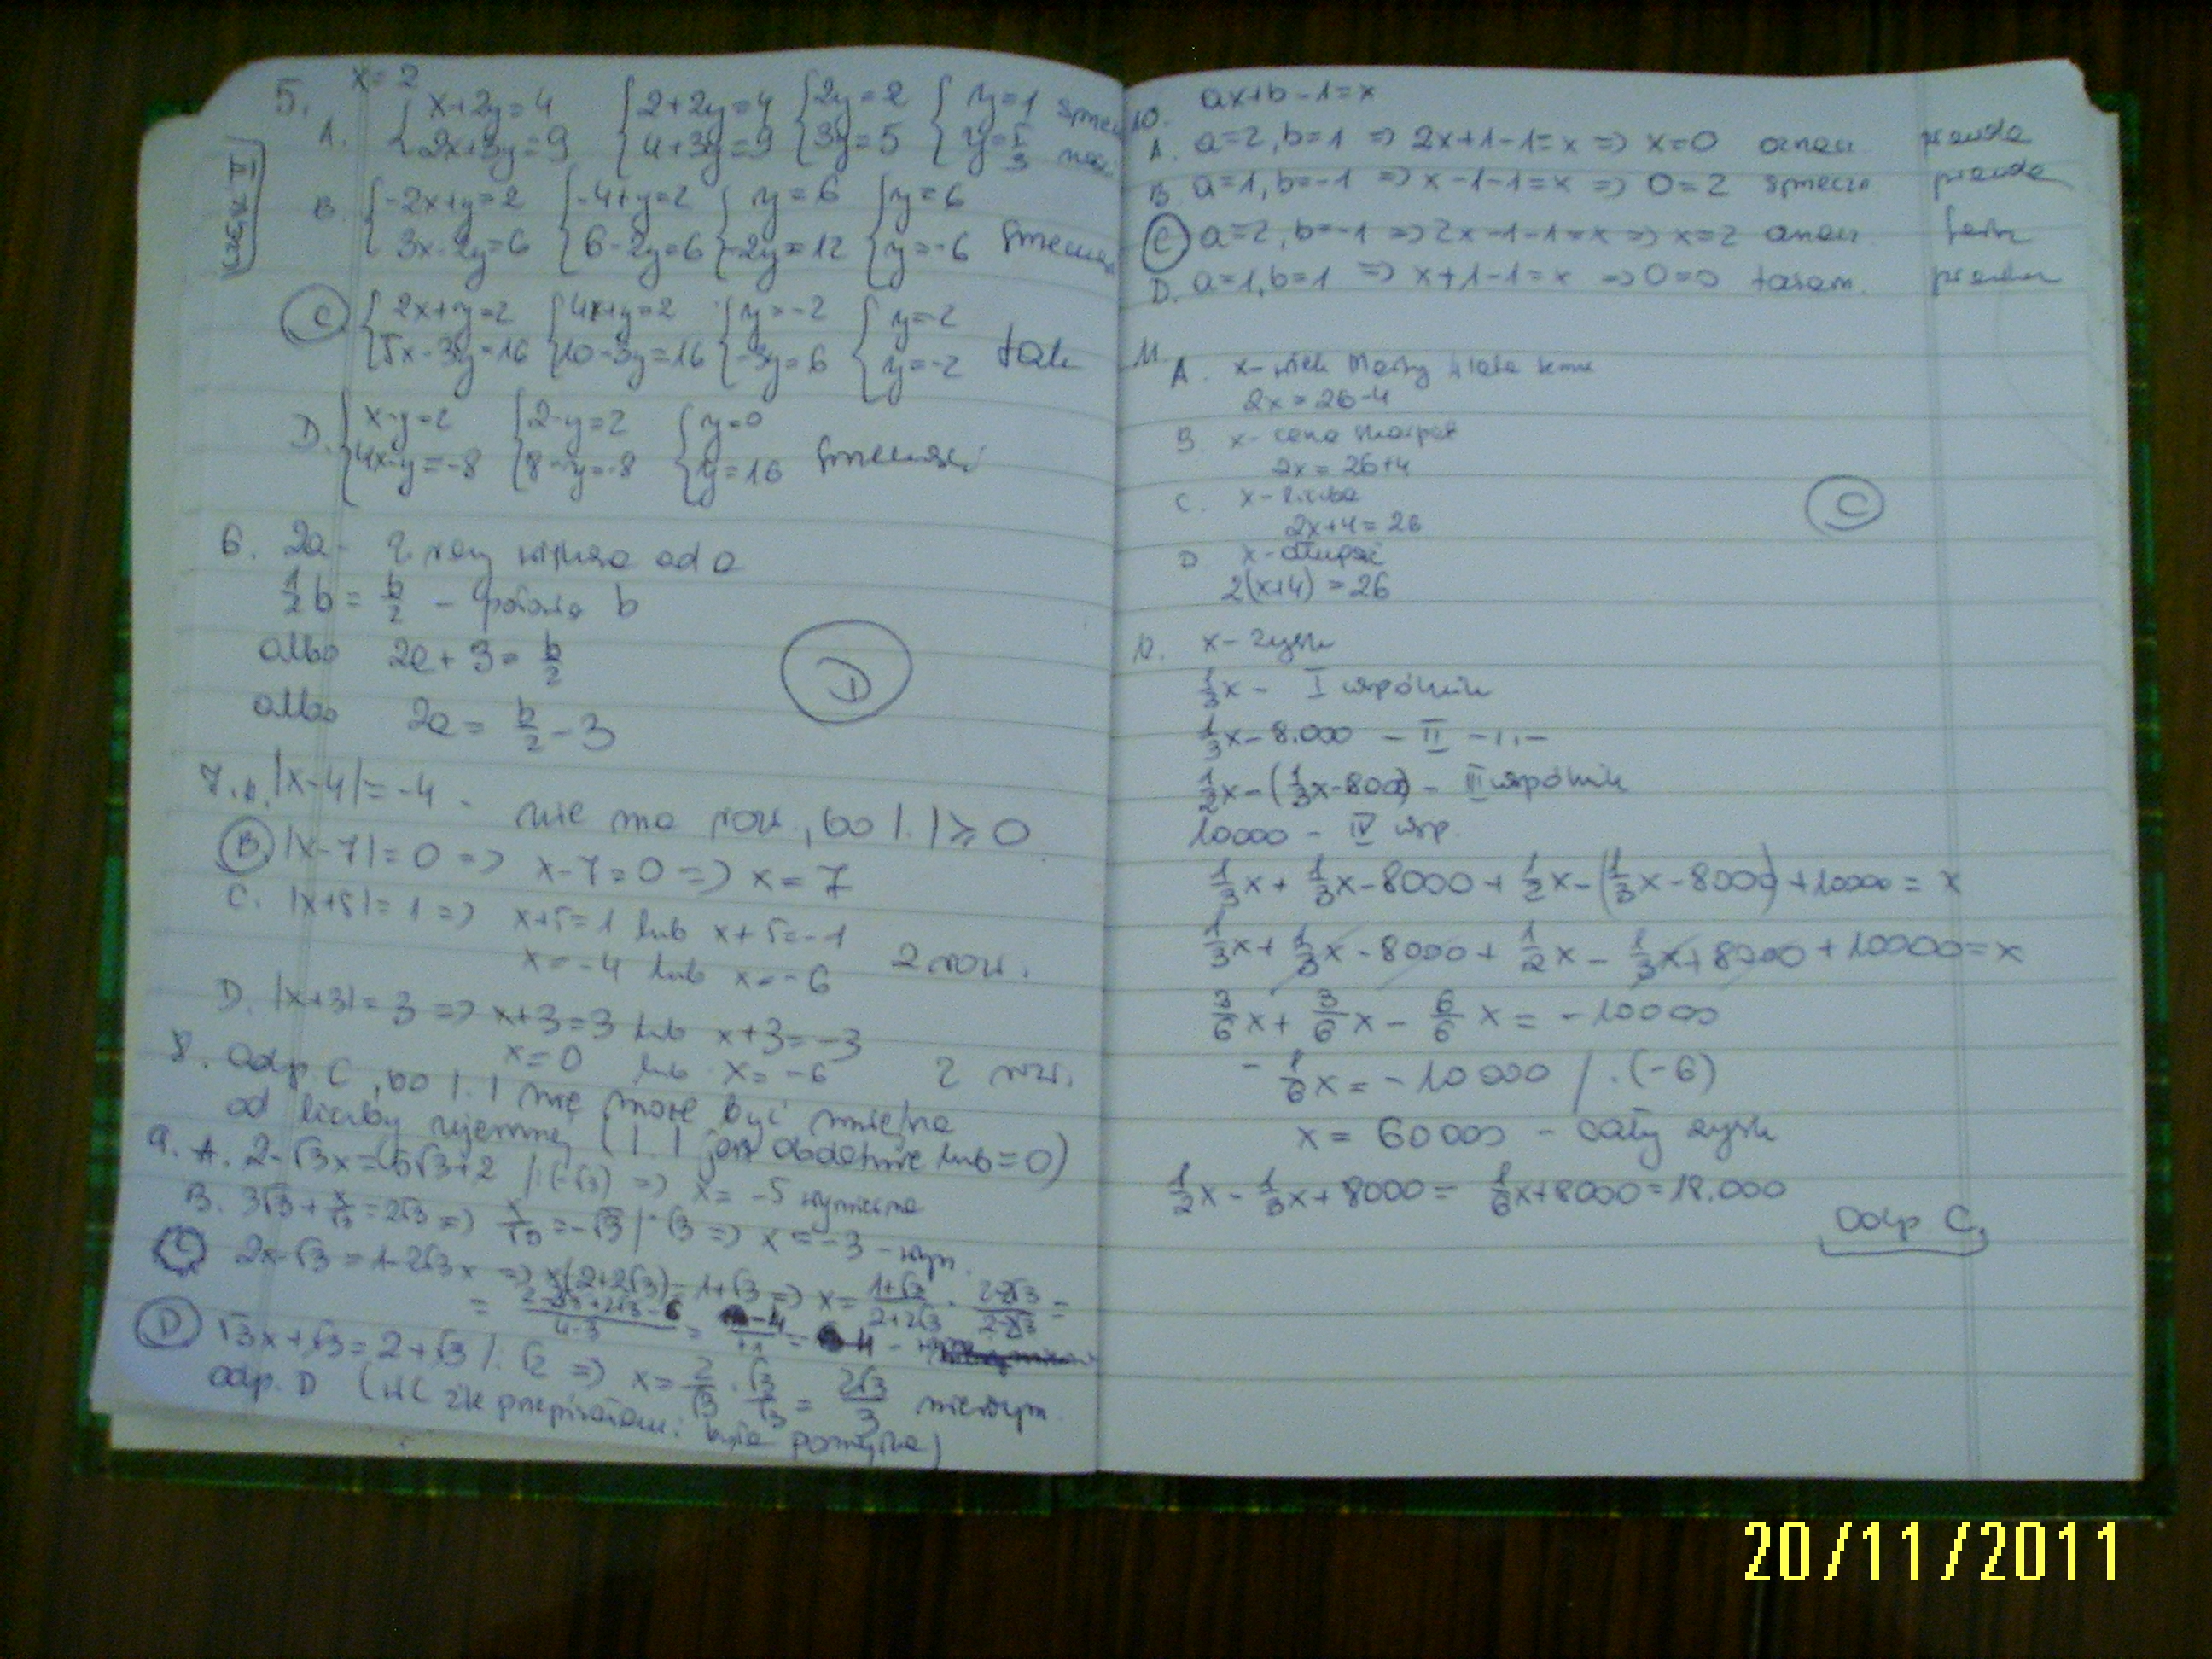 5. x=2
A. { x+2y=4 { 2+2y=4 { 2y=2 { y=1
{ 2x+3y=9 { 4+3y=9 { 3y=5 { y=5/3
B. { -2x+y=2 { -4+y=2 { y=6 { y=6
{ 3x-2y=6 { 6-2y=6 { -2y=12 { y=-6
C { 2x+y=2 { 4+y=2 { y=-2 { y=-2
{ 5x-3y=16 { 10-3y=16 { -3y=6 { y=-2 tak
D. { x-y=2 { 2-y=2 { y=0
{ 4x-y=-8 { 8-y=-8 { y=16
6. 2a - 2 razy większa od a
1/2 b = b/2 - połowa b
albo 2a+3 = b/2
D
albo 2a = b/2 - 3
7. A. |x-4|=-4 - nie ma rozw, bo |.|≥0
B |x-7|=0 => x-7=0 => x=7
C. |x+5|=1 => x+5=1 lub x+5=-1
x=-4 lub x=-6 2 rozw.
D. |x+3|=3 => x+3=3 lub x+3=-3
x=0 lub x=-6 2 rozw.
8. Odp. C, bo |.| nie może być mniejsza
od liczby ujemnej (|.| jest dodatnie lub =0)
9. A. 2-√3x=5√3+2 /:(-√3) => x=-5 wymierna
B. 3√3+x/√3=2√3 => x/√3=-√3 /·√3 => x=-3 - wym.
C 2x-√3=1-2√3x => x(2+2√3)=1+√3 => x=
D √3x+√3=2+√3 /:√2 => x=2/√3·√3/√3=2√3/3 niewym.
Odp. D (w C źle przepisałam i była pomyłka)
10. ax+b-1=x
A. a=2, b=1 => 2x+1-1=x => x=0 oznacz prawda
B. a=1, b=-1 => x-1-1=x => 0=2 sprzecz prawda
C a=2, b=-1 => 2x-1-1=x => x=2 oznacz fałsz
D. a=1, b=1 => x+1-1=x => 0=0 tożsam. prawda
11. A. x- wiek
2x=26-4
B. x- cena skarpet
2x=26+4
C. x- liczba
2x+4=26
C
D x- długość
2(x+4)=26
12. x- zysk
1/3x - I wspólnik
1/3x-8.000 - II -||-
1/2x-(1/3x-8000) - III wspólnik
10000 - IV wsp.
1/3x+1/3x-8000+1/2x-(1/3x-8000)+10000=x
1/3x+1/3x-8000+1/2x-1/3x+8000+10000=x
/6x+3/6x-6/6x=-10000
-1/6x=-10000 /·(-6)
x=60000 - cały zysk
1/2x-1/3x+8000=1/6x+8000=18.000
Odp C.
20/11/2011